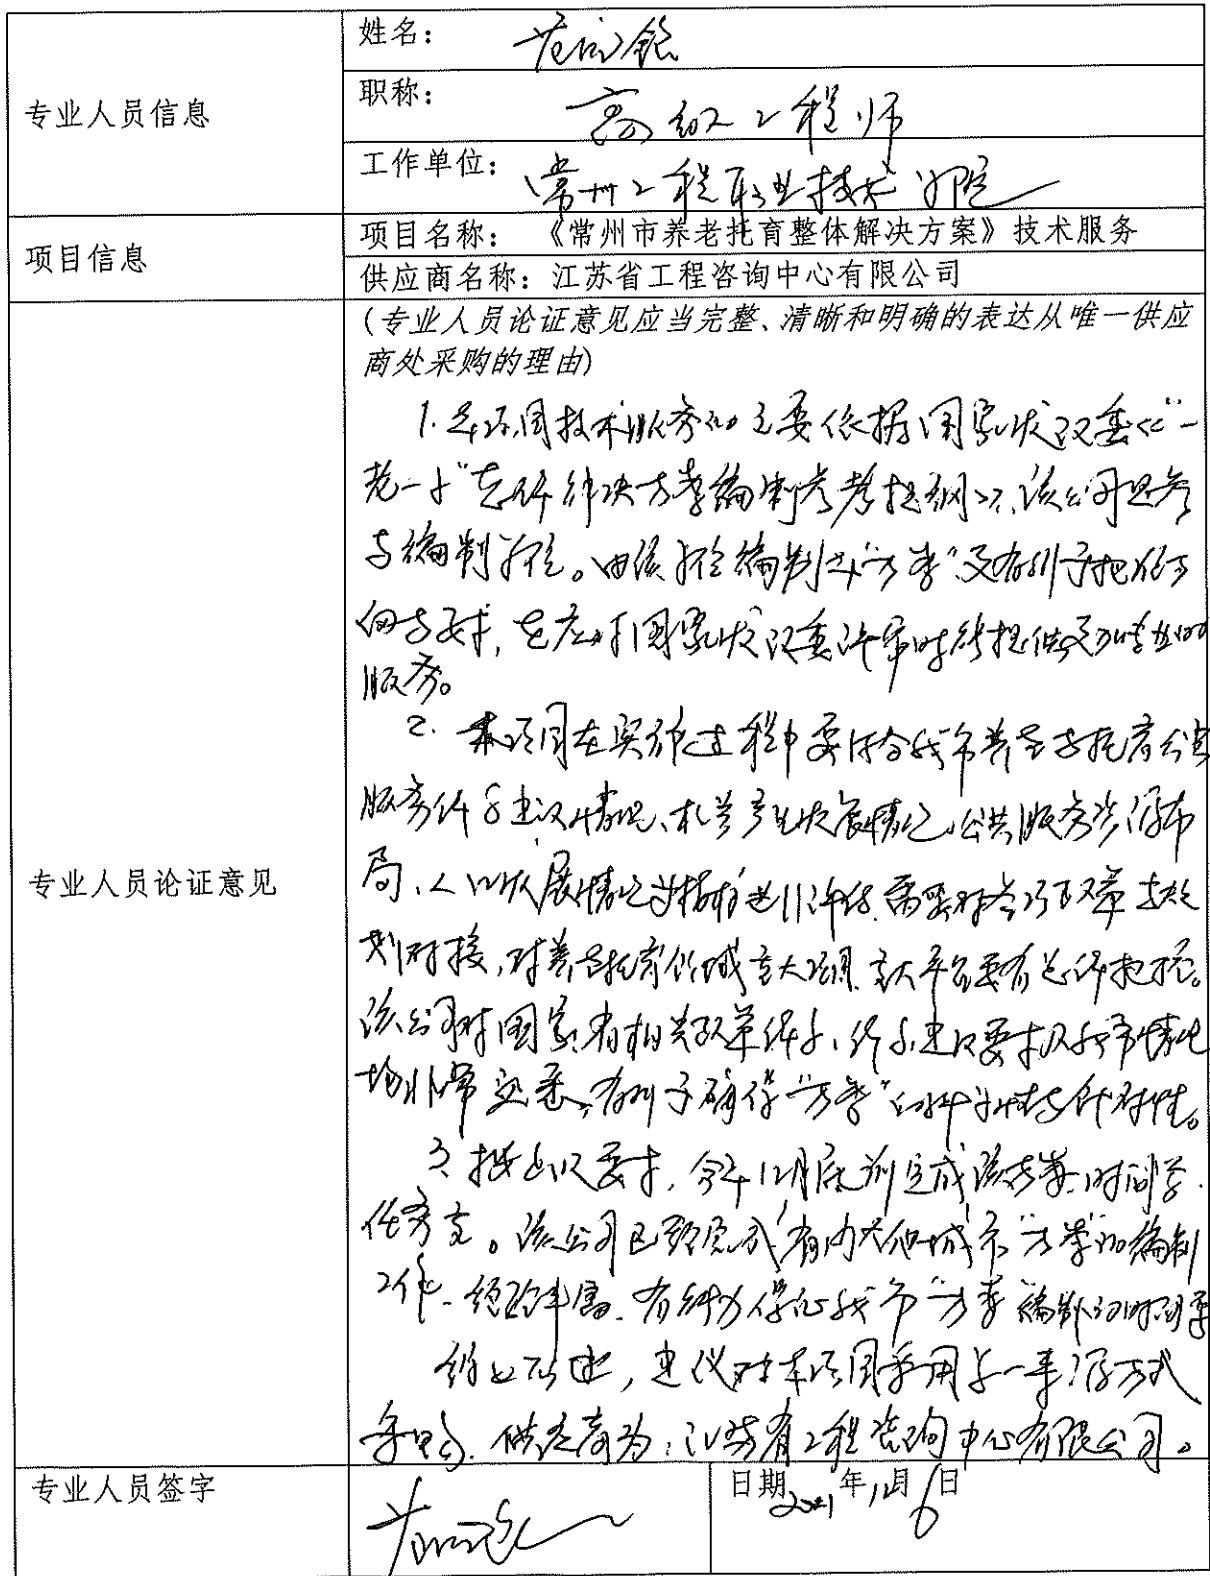 专业人员信息
姓名：
职称： 高级工程师
工作单位： 常州工程职业技术学院
项目信息
项目名称： 《常州市养老托育整体解决方案》技术服务
供应商名称：江苏省工程咨询中心有限公司
专业人员论证意见
(专业人员论证意见应当完整、清晰和明确的表达从唯一供应
商处采购的理由)
1.本项目技术服务的主要依据国家发改委《“一
老一小”整体解决方案编制参考提纲》,该公司是参
与编制单位。由该单位编制该“方案”更有利于把握方
向与要求,在应对国家发改委评审时能提供更加专业的
服务。
2. 本项目在实施过程中要结合我市养老与托育公共
服务体系建设情况、相关产业发展情况、公共服务资源布
局、人口发展情况等指标进行评估,需要对各项政策与规
划对接,对养老托育领域重大项目、重大平台要有总体把握。
该公司对国家、省相关政策体系、体系建设要求及我市情况
均非常熟悉,有利于确保“方案”的科学性与针对性。
3. 按照要求,今年12月底前完成该方案,时间紧
任务重。该公司已经完成省内其他城市“方案”的编制
工作,经验丰富,有能力保证我市“方案”编制的时间要
综上所述,建议对本项目采用单一来源方式
采购,供应商为:江苏省工程咨询中心有限公司。
专业人员签字
日期2021年12月6日